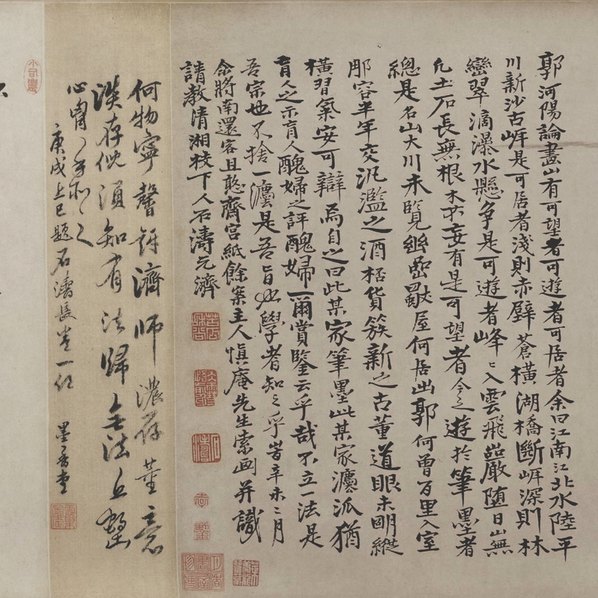 郭河陽論畫山有可望者可遊者可居者余曰江南江北水陸平
川新沙古岸是可居者淺則赤壁蒼橫湖橋斷岸深則林
巒翠滴瀑水懸爭是可遊者峰峰入雲飛巖墮日山無
凡土石長無根木不妄有是可望者今之遊於筆墨者
總是名山大川未覽幽屋何居出郭何曾百里入室
那容半年交氾濫之酒杯貨簇新之古董道眼未明縱
橫習氣安可辯焉自之曰此某家筆墨此某家灋派猶
盲人之示盲人醜婦之評醜婦爾賞鑒云乎哉不立一法是
吾宗也不捨一灋是吾旨也學者知之乎旹辛未二月
余將南還客且憨齋宮紙餘案主人慎庵先生索畫并識
請教清湘枝下人石濤元濟
何物寧馨訝濟師濃存董意
淡存倪須知有法歸無法丘壑
心胸手之
庚戌上巳題石濤長卷一